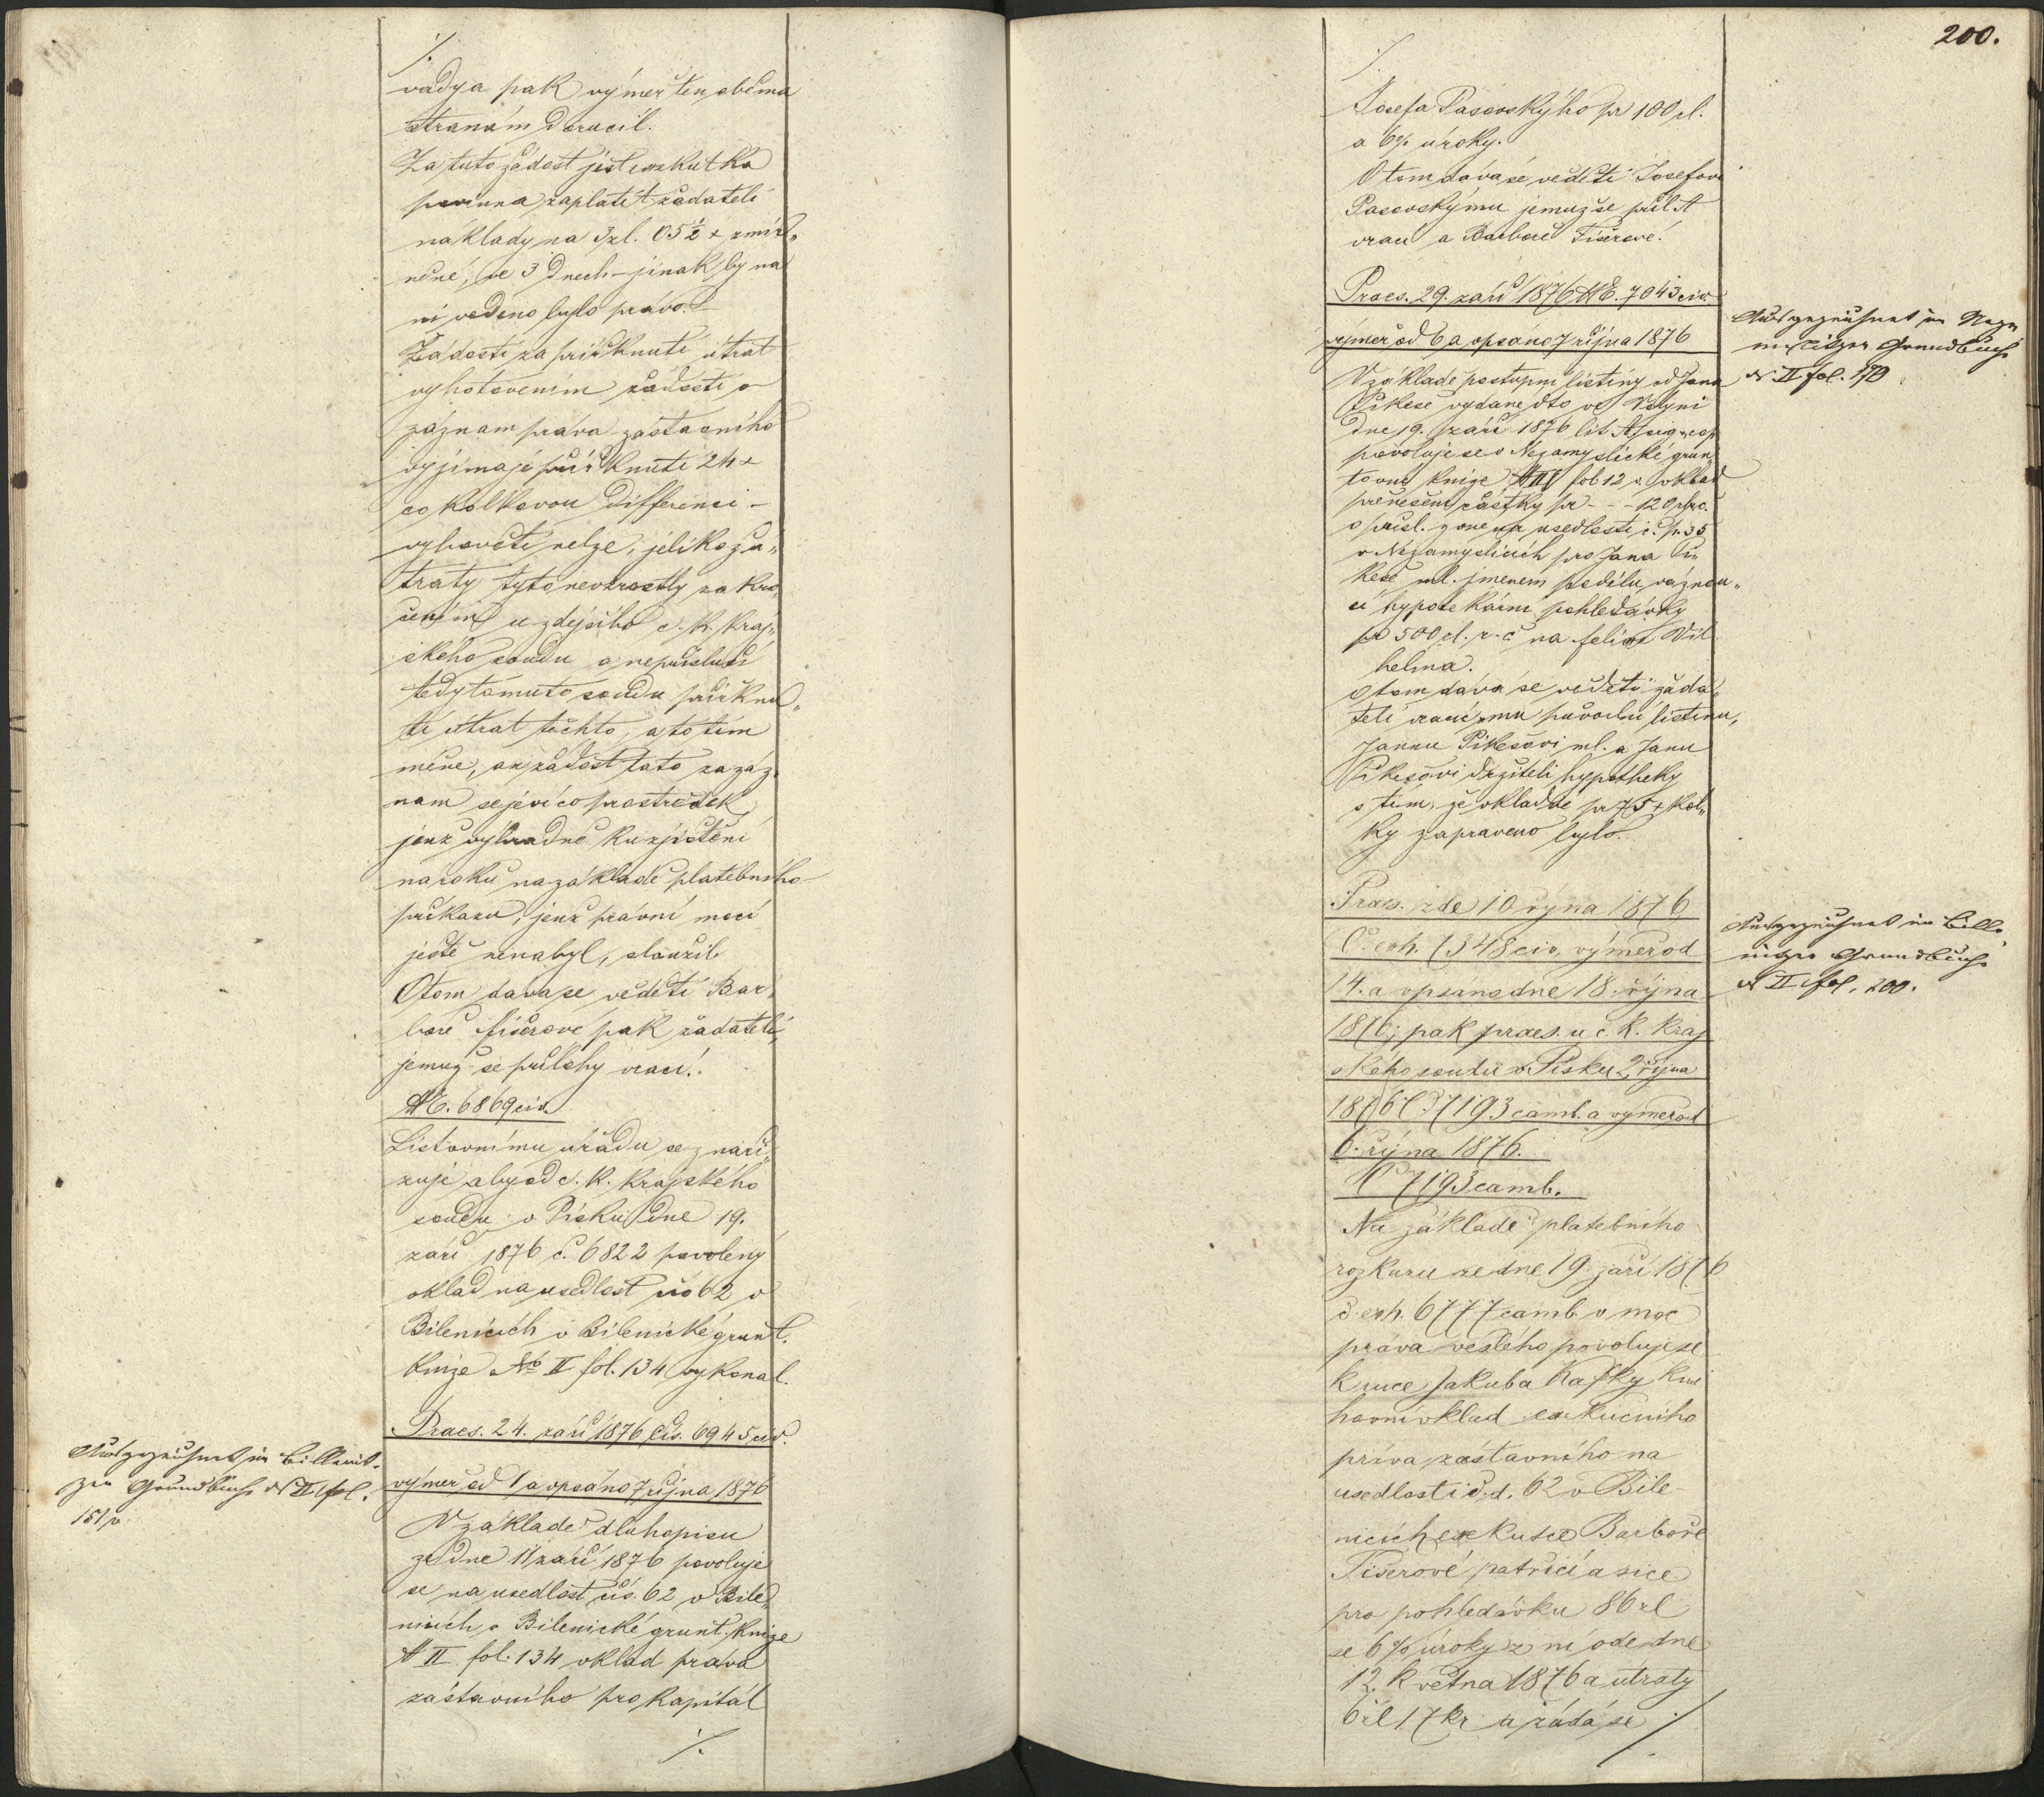 ./.
vadya pak výměr ten oběma
stranám doručil.
Za tuto žádost jest exekutka
povinna zaplatit žadateli
náklady na 3 zl. 05½ x zmír„
něné, ve 3 dnech – jinak by na
ni vedeno bylo právo. –
Žádosti za přiřknutí útrat
vyhotovením žádosti o
záznam práva zástavního
vyjímaje přiřknutí 24 x
co kolkovou differenci –
vyhověti nelze, jelikož ú„
traty tyto nevzrostly za kro„
čením u zdejšího c. k. kraj„
ského soudu a nepřísluší
tedy tomuto soudu přiřknu„
tí útrat těchto, a to tím
méně, an žádost tato za záz„
nam se jeví co prostředek
jenž výhradně ku zjištění
nároku na základě platebního
příkazu, jenž právní moci
ještě nenabyl, sloužil.
O tom dává se věděti Bar„
boře Fišerové pak žadateli,
jemuž se přílohy vrací.
№ E. 6869 civ.
Listovnímu úřadu se naři„
zuje aby od c. k. krajského
soudu v Písku dne 19.
září 1876 č. 6822 povolený
vklad na usedlost čís 62 v
Bilenicích v Bilenické grunt.
knize № II fol. 134 vykonal.
Praes. 24. září 1876 čís. 6945 civ.
výměr od 1 a opsáno 7 října 1876
V základě dluhopisu
ze dne 11 září 1876 povoluje
se na usedlost čís. 62 v Bile„
nicích v Bilenické grunt. knize
№ II fol. 134 vklad práva
zástavního pro kapitál
./.
Ausgezeichnet im Billenit-
zer Grundbuche № II fol.
151 p.
200.
./.
Josefa Pasovskýho pr 100 zl.
a 6% úroky.
O tom dává se věděti Josefovi
Pasovskýmu jemuž se příl. A
vrací a Barboře Fišerové.
Praes. 29. září 1876 № E. 7043 civ.
výměr od 6 a opsáno 7 října 1876
V základě postupní listiny od Jana
Pikeše vydané dto ve Volyni
dne 19. září 1876 lit A
povoluje se v Nezamyslické grun„
tovní knize № III fol 12 p. vklad
přenešení částky pr - - - 120 zl r.č.
s přísl. z one na usedlosti č. p. 35
v Nezamyslicích pro Jana Pi„
keše ml. jmenem podílu váznou„
cí hypotekární pohledávky
pr 500 zl. r. č na Felixe Vil
helma.
O tom dává se věděti žada„
teli vracíc mu původní listinu,
Jannu Pikešovi ml. a Janu
Pikešovi držiteli hypotheky
s tím, že vkladné pr 75 x kol„
ky zapraveno bylo.
Praes. zde 10 října 1876
Č. exh. 7348 civ, výměr od
14. a opsáno dne 18. října
1876; pak praes. u c. k. kraj
ského soudu v Písku 2. října
1876 Č. 7193 camb. a výměr od
6. října 1876.
Č 7193 camb.
Na základě platebního
rozkazu ze dne 19. září 1876
č. exh. 6777 camb. v moc
práva vešlého povoluje se
k ruce Jakuba Kafky kni
hovní vklad exekučního
práva zástavního na
usedlosti č. d. 62 v Bile-
nicích exekutce Barboře
Fišerové patřící a sice
pro pohledávku 86 zl
se 6% úroky z ní ode dne
12. května 1876 a útraty
6 zl 17 kr a žádá se ./.
Ausgezeichnet im Neza
mislitzer Grundbuche
№ II fol. 170
Ausgezeichnet im Bille
nitzer Grundbuche
№ II fol. 200.